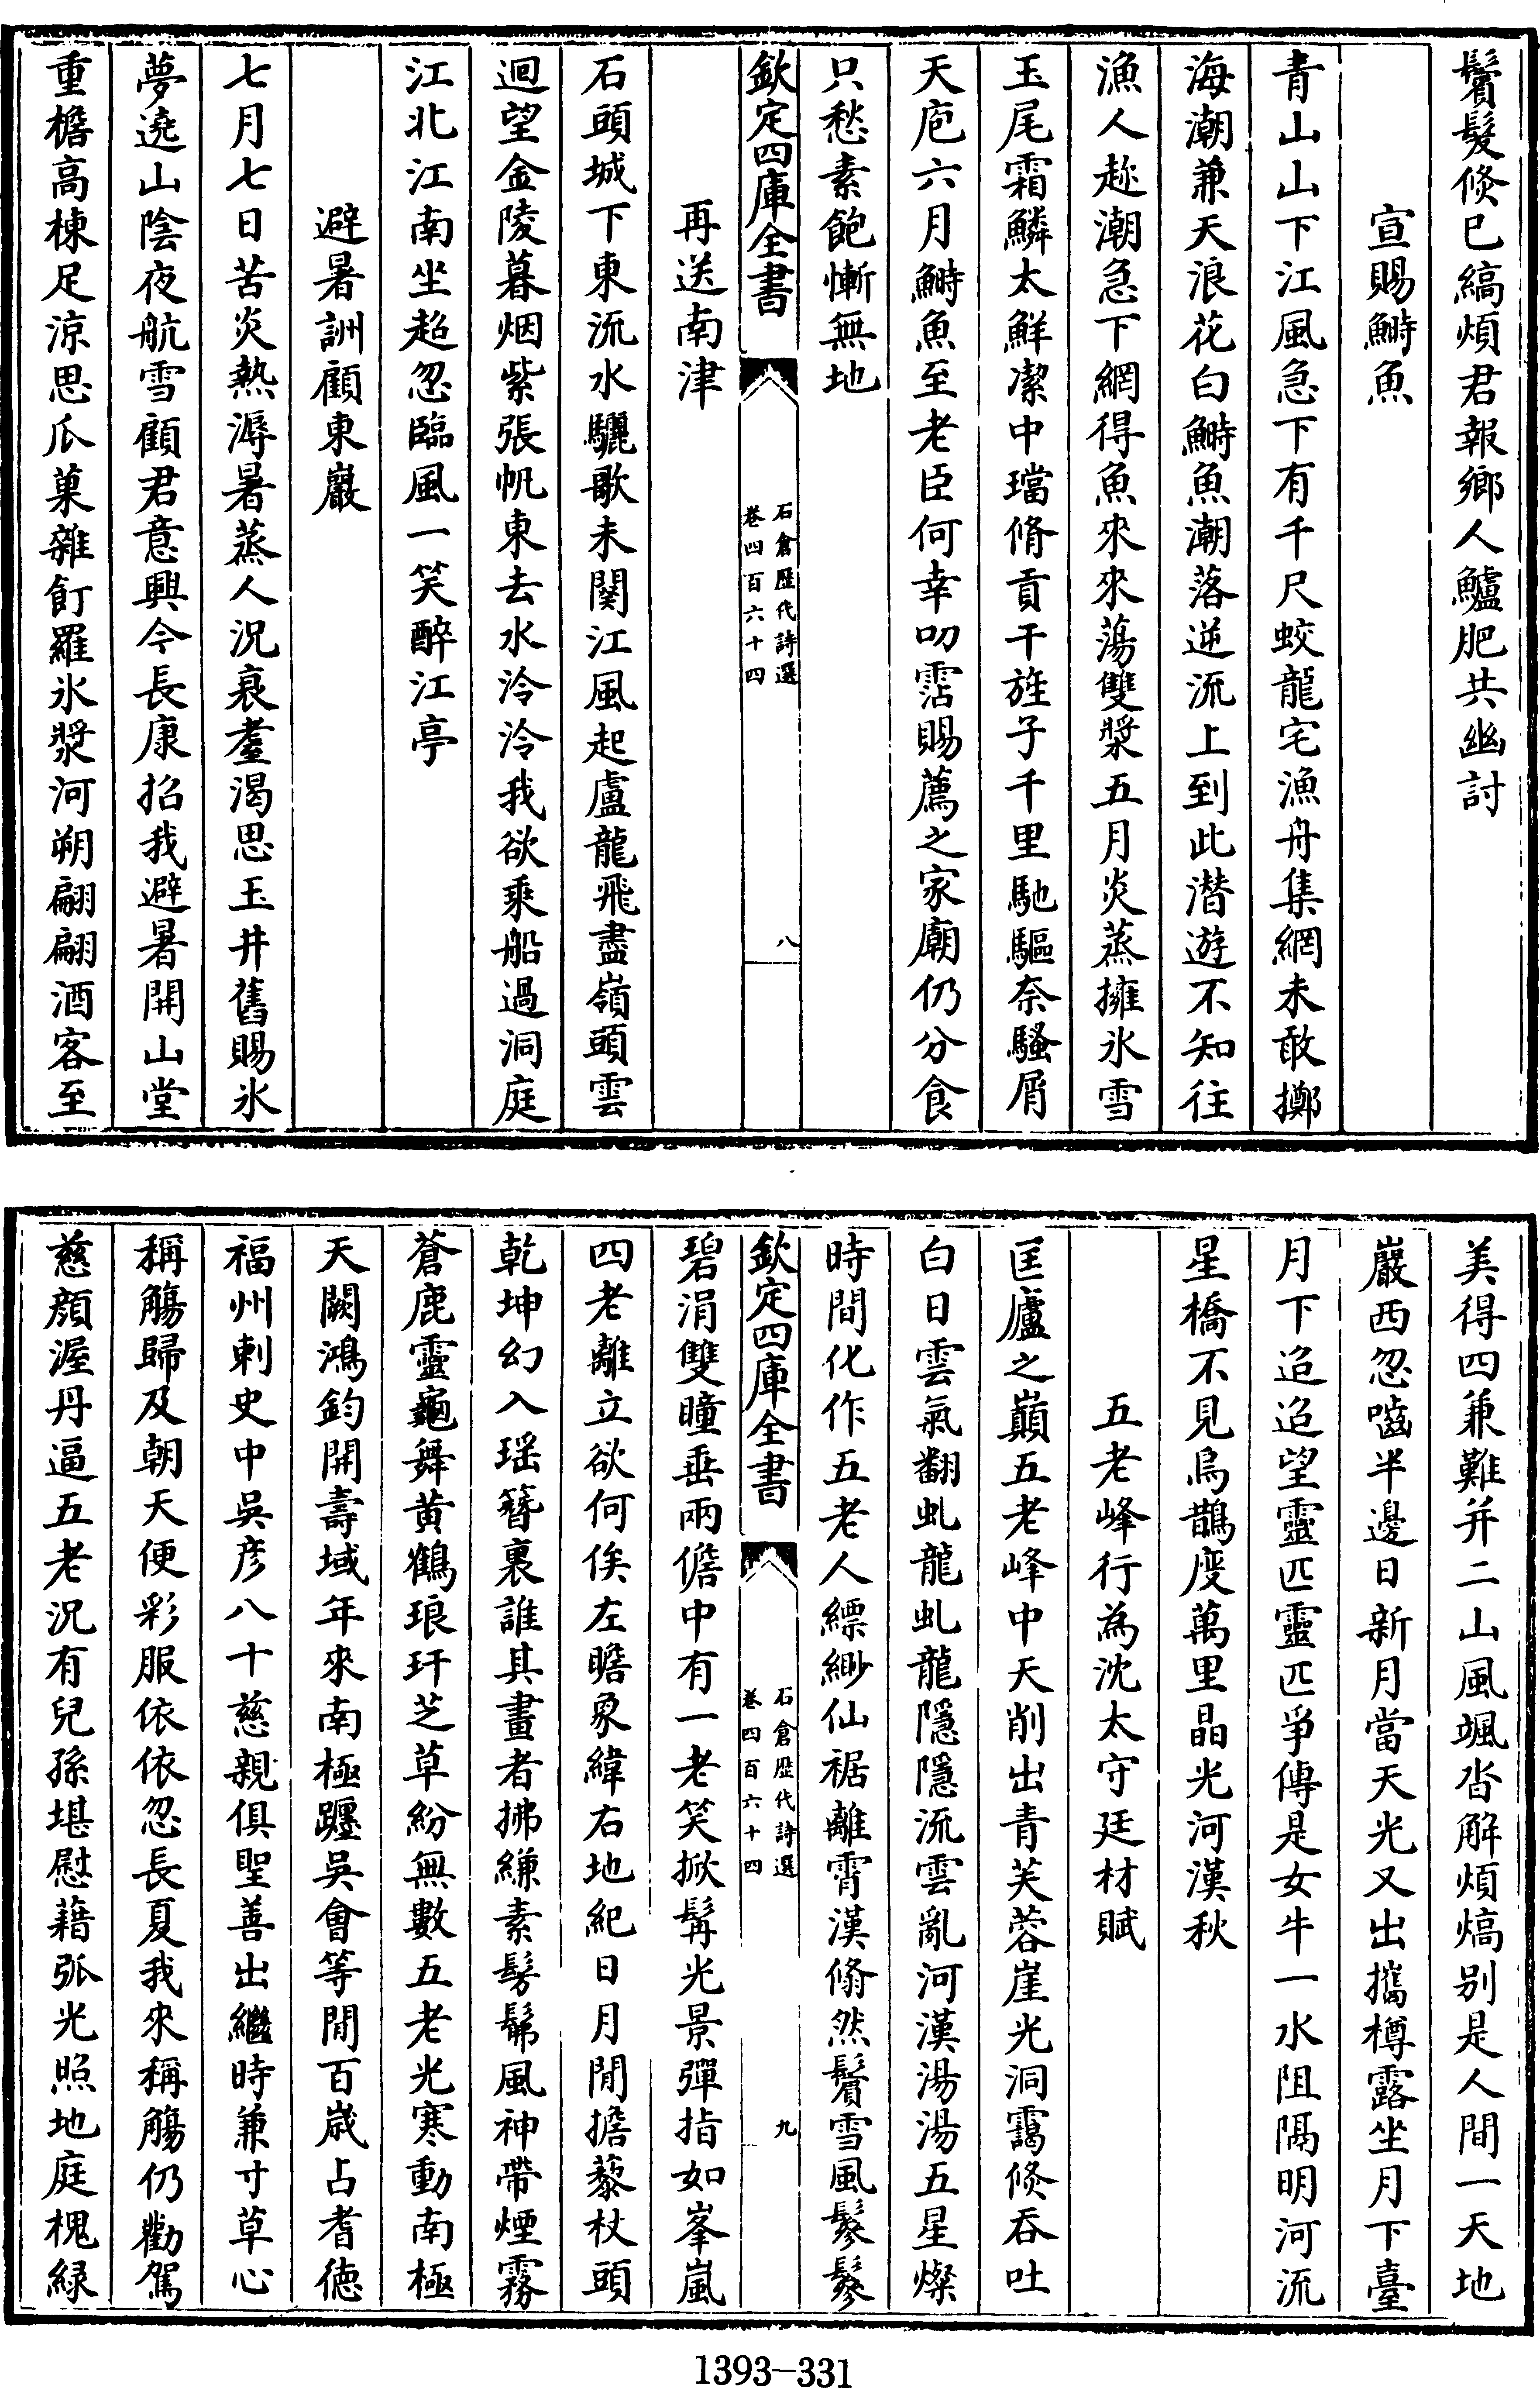 鬢髮倐已縞煩君報鄉人鱸肥共幽討
宣賜鰣魚
青山山下江風急下有千尺蛟龍宅漁舟集網未敢擲
海潮兼天浪花白鰣魚潮落逆流上到此潜遊不知往
漁人趂潮急下網得魚來來蕩雙槳五月炎蒸擁氷雪
玉尾霜鱗太鮮潔中璫脩貢干旌子千里馳驅奈騷屑
天庖六月鰣魚至老臣何幸叨霑賜薦之家廟仍分食
只愁素飽慚無地
欽定四庫全書
石倉歷代詩選
卷四百六十四
八
再送南津
石頭城下東流水驪歌未闋江風起盧龍飛盡嶺頭雲
迴望金陵暮烟紫張帆東去水泠泠我欲乘船過洞庭
江北江南坐超忽臨風一笑醉江亭
避暑詶顧東巖
七月七日苦炎熱溽暑蒸人況衰耋渴思玉井舊賜氷
夢遶山陰夜航雪顧君意興今長康招我避暑開山堂
重檐高棟足凉思瓜菓雜飣羅氷漿河朔翩翩酒客至
美得四兼難并二山風颯沓解煩熇别是人間一天地
巖西忽嚙半邊日新月當天光又出攜樽露坐月下臺
月下迢迢望靈匹靈匹爭傳是女牛一水阻隔明河流
星橋不見烏鵲度萬里晶光河漢秋
五老峰行為沈太守廷材賦
匡廬之巔五老峰中天削出青芙蓉崖光洞靄倐吞吐
白日雲氣翻虬龍虬龍隱隱流雲亂河漢湯湯五星燦
時間化作五老人縹緲仙裾離霄漢翛然鬢雪風鬖鬖
欽定四庫全書
石倉歷代詩選
卷四百六十四
九
碧涓雙瞳垂兩儋中有一老笑掀髯光景彈指如峯嵐
四老離立欲何俟左瞻象緯右地紀日月閒擔藜杖頭
乾坤幻入瑶簪裏誰其畫者拂縑素髣髴風神帶煙霧
蒼鹿靈龜舞黄鶴琅玕芝草紛無數五老光寒動南極
天闕鴻鈞開壽域年來南極躔吳會等閒百歲占耆德
福州刺史中吳彦八十慈親俱聖善出繼時兼寸草心
稱觴歸及朝天便彩服依依忽長夏我來稱觴仍勸駕
慈顔渥丹逼五老況有兒孫堪慰藉弧光照地庭槐緑
1393-331